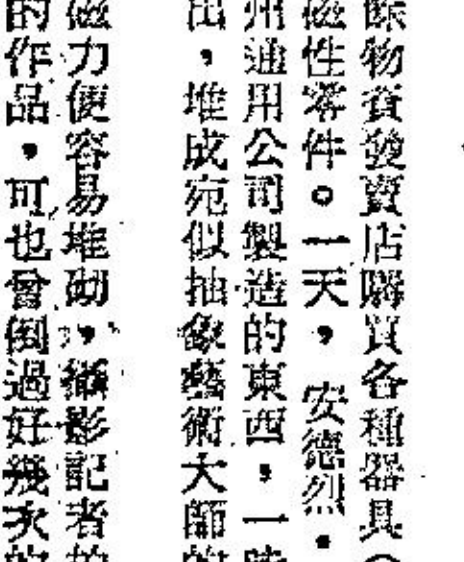 餘物資發賣店購買各種器具（
磁性零件。一天，安德烈．
州通用公司製造的東西，一時
出，堆成宛似抽象藝術大師的
磁力便容易堆砌，攝影記者的
的作品，可也曾倒過好幾次的